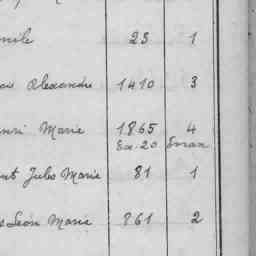 mile 23 1
Alexandre 1410 3
nri Marie 1865 4
Ex-20
nt Jules Marie 81 1
s Léon Marie 861 2